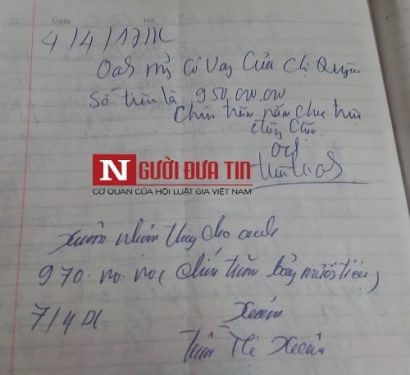 Date No
4/4/17 DL
Oas mỷ có vay của chị Quyên
Số tiền là 950.000.000
Chín trăm năm chục triệu
đồng chẵn
NGƯỜI ĐƯA TIN
CƠ QUAN CỦA HỘI LUẬT GIA VIỆT NAM
Xuân nhận thay cho
970.000.000 (chín trăm bảy mươi triệu)
7/4 DL Xuân
Thị Xuân